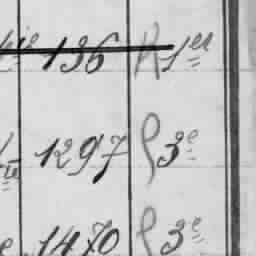 136 R 1er
1297 R 3e
1470 R 3e